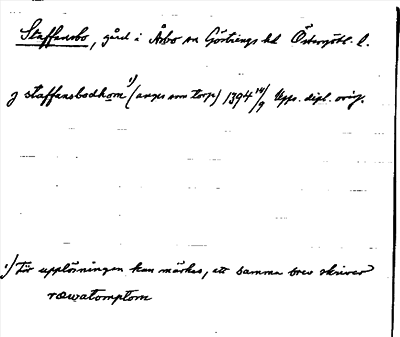 Staffansbo, gård i Åsbo sn Göstrings hd Östergötl. l.
j staffansbodhom¹) (anges som torp) 1394 14/9 Upps. dipl. orig.
¹) För upplösningen kan märkas, att samma brev skriver
rawatomptom